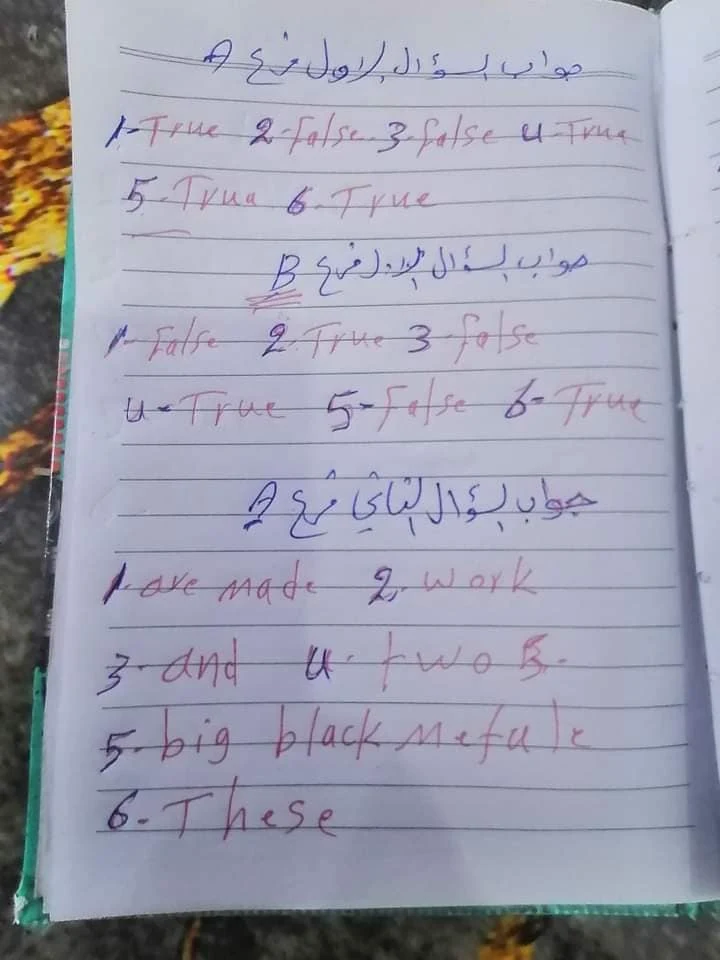 جواب السؤال الاول فرع A
1- True 2- false 3- false 4- True
5- True 6- True
جواب السؤال الاول فرع B
1- False 2- True 3- false
4- True 5- False 6- True
جواب السؤال الثاني فرع A
1- are made 2. work
3- and 4. two
5- big black
6- These